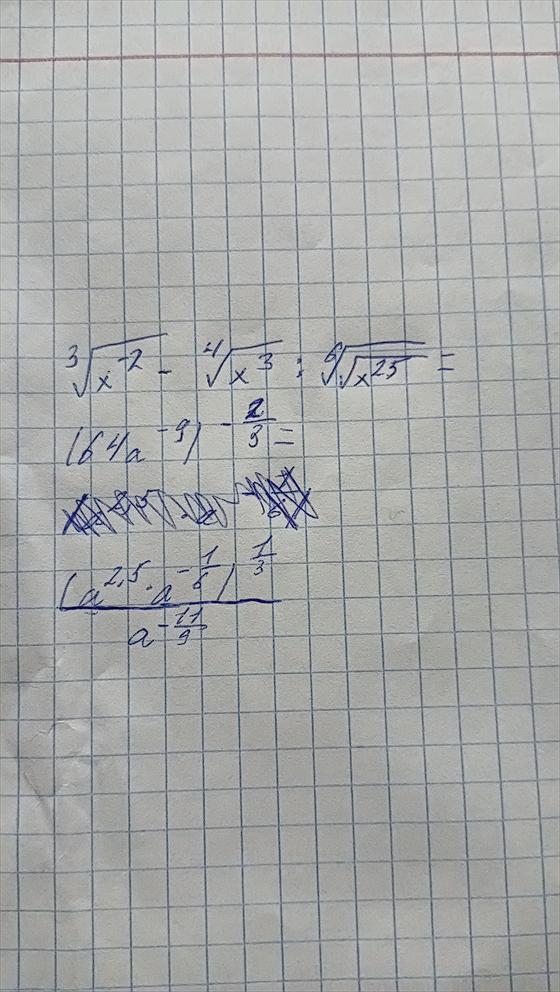 ∛(x⁻²) - ∜(x³) : ⁶√(√(x²⁵)) =
(64a⁻⁹)^(-2/3) =
(a^(2,5) · a^(-1/6))^(1/3) / a^(-11/9)